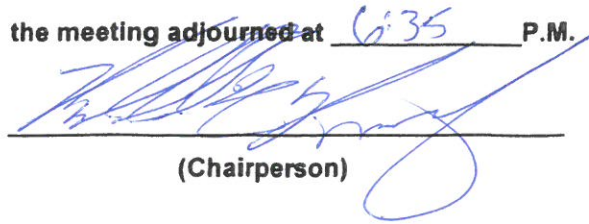 the meeting adjourned at 6:35 P.M.
(Chairperson)